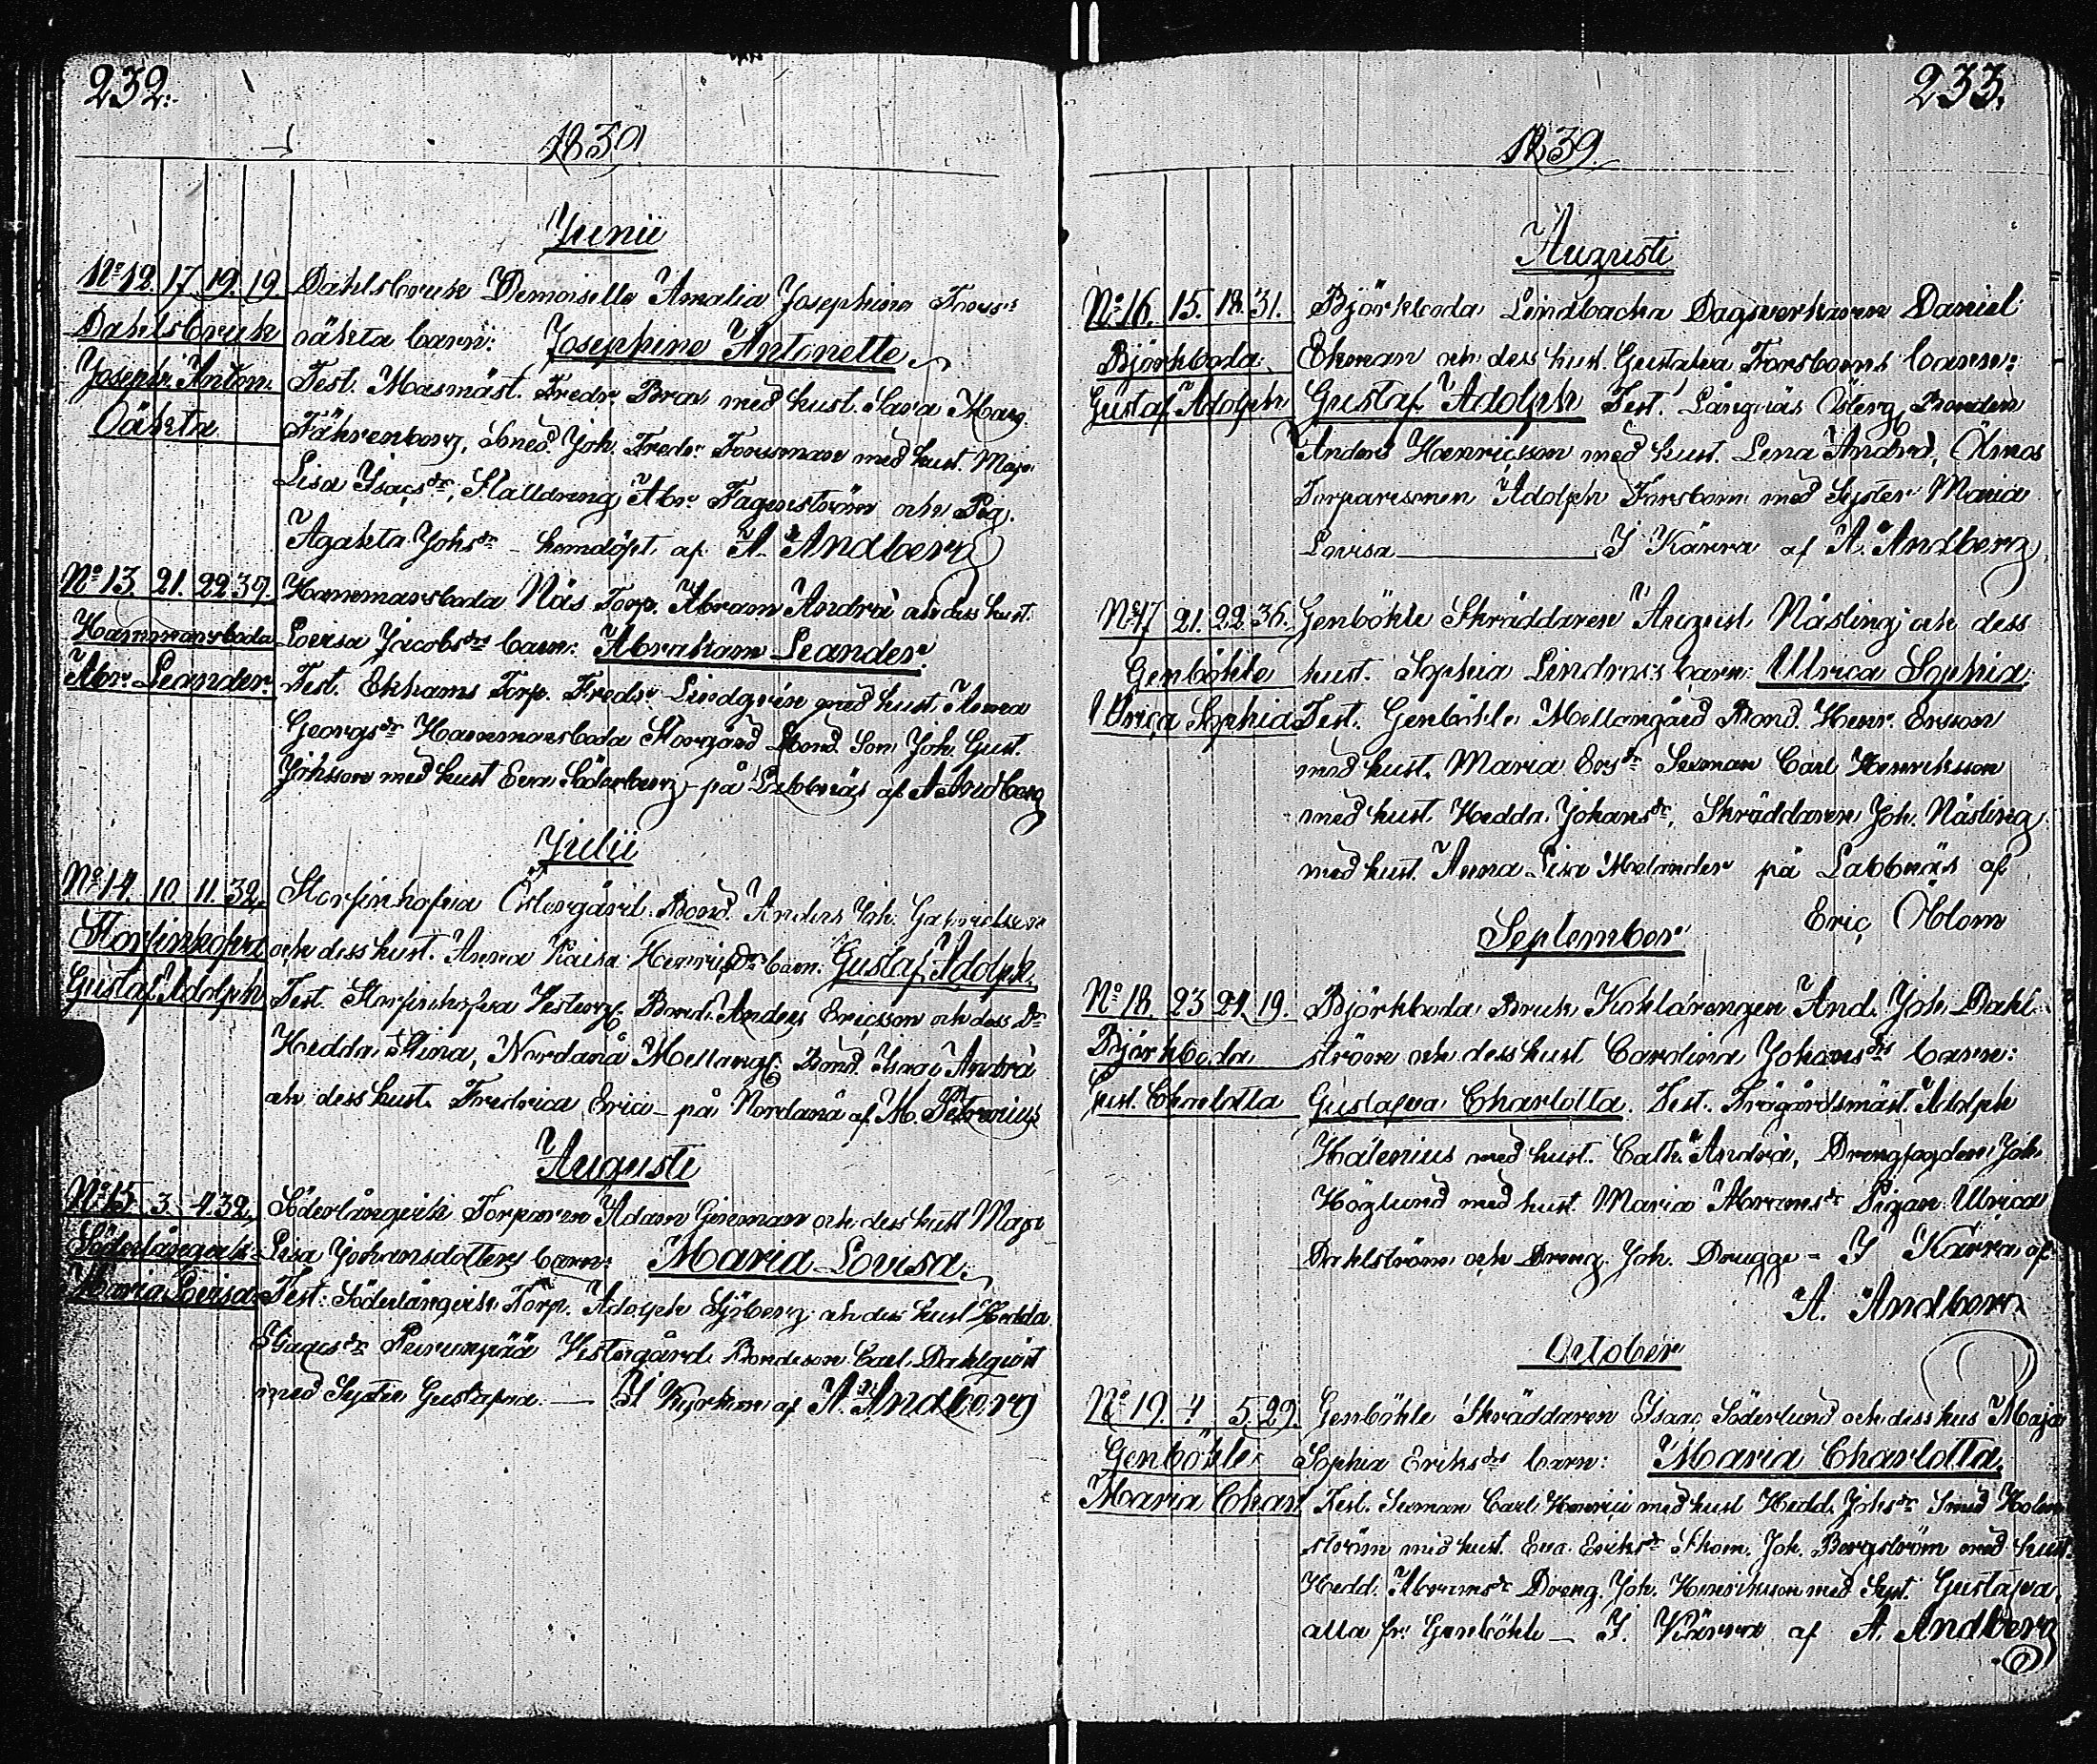 232.
1839
Junii
No 12. 17. 19. 19. Dahlsbruk Demoiselle Amalia Josephina
Dahlsbruk oäkta barn: Josephine Antonette
Joseph. Anton. Test. Masmäst. Fredr. Bras med hust. Sara Marg.
Oäkta Fährenberg, Smed. Joh. Fredr. Forssman med hust. Maja
Lisa Isacsdr, Stalldreng Abr. Fagerström och Pig.
Agahta Johsdr - hemdöpt af A. Andberg
No 13. 21. 22 39. Hammarsboda Näs Torp. Abram Andra och dess hust.
Hammarsboda Lovisa Jacobsdrs barn: Abraham Leander.
Abr. Leander. Test. Ekhams Torp. Fredr. Lindgrén med hust. Anna
Georgsdr Hammarsboda Storgård Bond. Son Joh. Gust.
Johsson med hust Eva Söderberg - på Labbnäs af A Andberg
Julii
No 14. 10. 11. 32. Storfinhofva Östergård. Bond. Anders Joh. Gabrielsson
Storfinhofva och dess hust. Anna Kaisa Henricsdrs barn: Gustaf Adolph.
Gustaf Adolph Test. Storfinhofva Vesterg. Bond. Anders Ericsson och dess Dr
Hedda Stina, Nordanå Mellangd. Bond. Isac Andra
och dess hust. Fredrica Erici - på Nordanå af M. Petrenius
Augusti
No 15 3. 4 32. Söderlångvik Torparen Adam Genman och dess hust Maja
Söderlångvik Lisa Johansdotters barn: Maria Lovisa.
Maria Lovisa Test: Söderlångvik Torp. Adolph Sjöberg och dess hust Hedda
Isacsdr Vestergård Bondeson Carl Dahlqvist
med Syster Gustafva. — I Kyrkan af A. Andberg
233.
1839.
Augusti
No 16. 15. 18. 31. Björkboda Lindbacka Dagsverkaren Daniel
Björkboda Ekman och dess hust. Gustafva Forsboms barn:
Gustaf Adolph Gustaf Adolph Test. Långnäs Österg. Bonden
Anders Henricsson med hust. Lena Andrd, Ölmos
Torparesonen Adolph Forsbom med Syster Maria
Lovisa — I Kärra af A. Andberg
No 17 21. 22. 36. Genböhle Skräddaren August Näsling och dess
Genböhle hust. Sophia Lindroos barn: Ulrica Sophia
Ulrica Sophia Test. Genböhle Mellangård Bond. Henr. Ersson
med hust. Maria Ersdr Sexman Carl Henriksson
med hust. Hedda Johansdr, Skräddaren Joh. Näsling
med hust. Anna Lisa Melander på Labbnäs af
Eric Öblom
September
No 18. 23 24. 19. Björkboda Bruk, Kohldrengen And. Joh. Dahl-
Björkboda ström och dess hust Carolina Johansdrs barn:
Gust. Charlotta Gustafva Charlotta. Test. Trägårdsmäst. Adolph
Hälenius med hust. Cath. Andra, Drengfogden Joh.
Höglund med hust. Maria Abramsdr Pigan Ulrica
Dahlström och Dreng. Joh. Drugge - I Kärra af
A. Andberg
October
No 19. 4 5. 29. Genböhle Skräddaren Isaac Söderlund och dess hus Maja
Genböhle Sophia Eriksdrs barn: Maria Charlotta.
Maria Char. Test. Sexman Carl Henrici med hust Hedd. Johsdr Smed Holm-
ström med hust. Eva Eriksdr Skom. Joh. Bergström med hust.
Hedd. Abramsdr Dreng. Joh. Henriksson med Syst. Gustafva,
alla fr. Genböhle — I. Kärra af A. Andberg